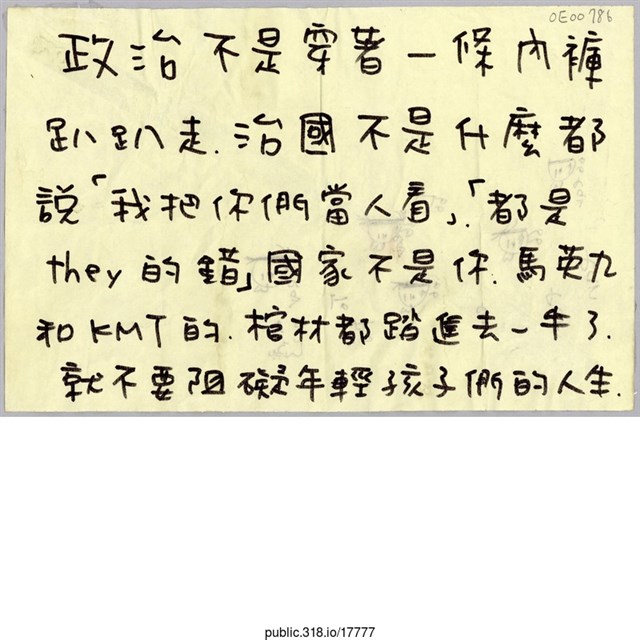 OE00786
政治不是穿著一條內褲
趴趴走.治國不是什麼都
說「我把你們當人看」.「都是
they的錯」國家不是你.馬英九
和KMT的.棺材都踏進去一半了.
就不要阻礙年輕孩子們的人生.
public.318.io/17777